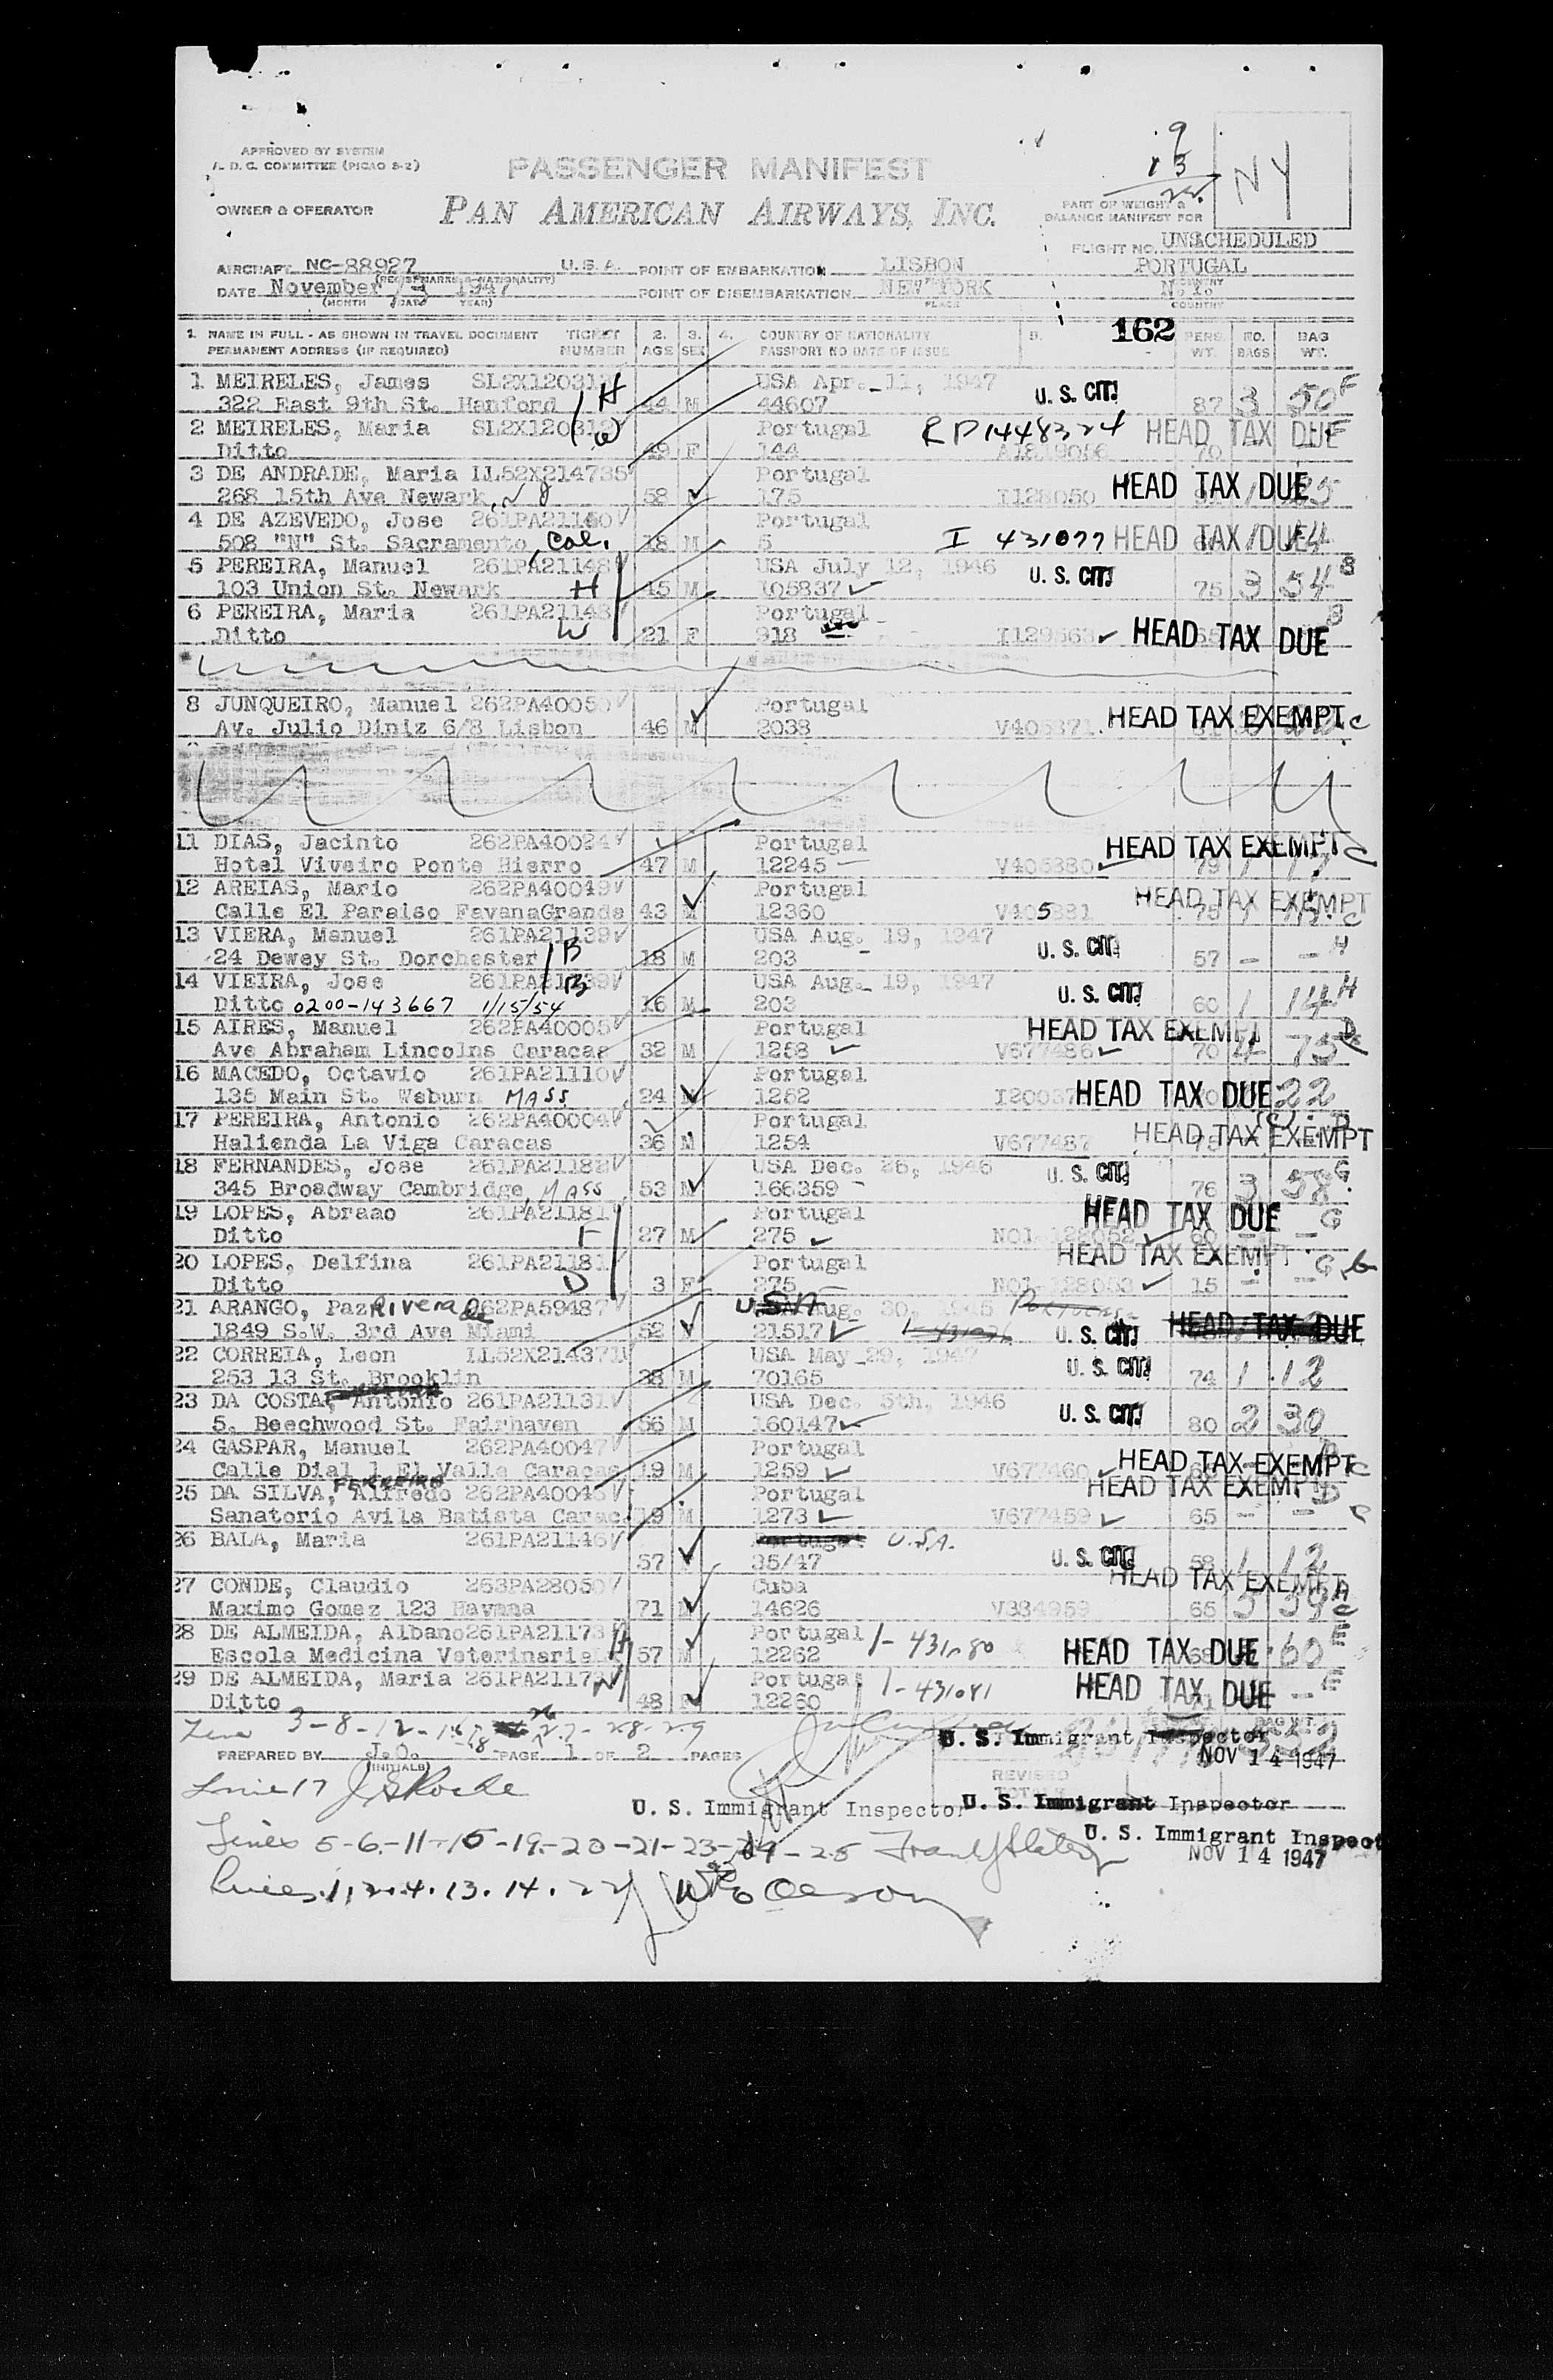 9
13
22
NY
APPROVED BY SYSTEM
A. D. C. COMMITTEE (PICAO S-2)
PASSENGER MANIFEST
OWNER & OPERATOR
PAN AMERICAN AIRWAYS, INC.
PART OF WEIGHT &
BALANCE MANIFEST FOR
FLIGHT NO. UNSCHEDULED
AIRCRAFT NC-88927 U.S.A. POINT OF EMBARKATION LISBON PORTUGAL
DATE November 1947 POINT OF DISEMBARKATION NEW YORK N.Y.
(MONTH DATE YEAR) PLACE COUNTRY
1. NAME IN FULL - AS SHOWN IN TRAVEL DOCUMENT TICKET 2. 3. 4. COUNTRY OF NATIONALITY 5. 162 PERS. NO. BAG
PERMANENT ADDRESS (IF REQUIRED) NUMBER AGE SEX PASSPORT NO DATE OF ISSUE WT. BAGS WT.
1 MEIRELES, James SL2X120312 H USA Apr. 11, 1947 U. S. CIT. F
322 East 9th St. Hanford 44 M 44607 87 3 50
2 MEIRELES, Maria SL2X120312 W Portugal RP1448324 HEAD TAX DUE F
Ditto 49 F 144 70
3 DE ANDRADE, Maria LL52X214735 Portugal HEAD TAX DUE
268 15th Ave Newark, NJ 58 175 I128050
4 DE AZEVEDO, Jose 261PA21150 Portugal
508 "N" St. Sacramento, Cal. 18 M 5 I 431077 HEAD TAX DUE
5 PEREIRA, Manuel 261PA21148 USA July 12, 1946 U. S. CIT. B
103 Union St. Newark H 45 M 105837 75 3 54
6 PEREIRA, Maria 261PA21148 Portugal B
Ditto W 21 F 918 I129563 HEAD TAX DUE
8 JUNQUEIRO, Manuel 262PA40050 Portugal HEAD TAX EXEMPT C
Av. Julio Diniz 6/8 Lisbon 46 M 2038 V405371
11 DIAS, Jacinto 262PA40024 Portugal HEAD TAX EXEMPT C
Hotel Viveiro Ponte Hierro 47 M 12245 V405380 79 1 17
12 AREIAS, Mario 262PA40049 Portugal HEAD TAX EXEMPT
Calle El Paraiso FavanaGrande 43 M 12360 V405381 C
13 VIERA, Manuel 261PA21139 B USA Aug. 19, 1947 U. S. CIT. H
24 Dewey St. Dorchester 18 M 203 57 - -
14 VIEIRA, Jose 261PA21139 B USA Aug. 19, 1947 U. S. CIT. H
Ditto 0200-143667 1/15/54 16 M 203 60 1 14
15 AIRES, Manuel 262PA40005 Portugal HEAD TAX EXEMPT D
Ave Abraham Lincolns Caracas 32 M 1258 V677486 70 4 75
16 MACEDO, Octavio 261PA21110 Portugal HEAD TAX DUE 22
135 Main St. Weburn MASS 24 1252
17 PEREIRA, Antonio 262PA40004 Portugal HEAD TAX EXEMPT
Halienda La Viga Caracas 36 M 1254 V677487
18 FERNANDES, Jose 261PA21182 USA Dec. 26, 1946 U. S. CIT. G
345 Broadway Cambridge, MASS 53 M 166359 76 3 58
19 LOPES, Abraao 261PA21181 Portugal HEAD TAX DUE G
Ditto F 27 M 275 60
20 LOPES, Delfina 261PA21181 Portugal HEAD TAX EXEMPT G
Ditto D 3 F 275 NO1-128053 15 - -
21 ARANGO, Paz Rivera de 262PA59487 U.S.A Aug. 30, 1945 HEAD TAX DUE
1849 S.W. 3rd Ave Miami 52 21517 U. S. CIT.
22 CORREIA, Leon LL52X214371 USA May 29, 1947 U. S. CIT.
253 13 St. Brooklin 38 M 70165 74 1 12
23 DA COSTA, Antonio 261PA21131 USA Dec. 5th, 1946 U. S. CIT.
5. Beechwood St. Fairhaven 56 M 160147 80 2 30
24 GASPAR, Manuel 262PA40047 Portugal HEAD TAX EXEMPT
Calle Dial 1 El Valla Caracas 19 M 1259 V677460 C
FERREIRA
25 DA SILVA, Alfredo 262PA40045 Portugal HEAD TAX EXEMPT D
Sanatorio Avila Batista Carac. 19 M 1273 V677459 65 - - C
26 BALA, Maria 261PA21146 Portugal U.S.A. U. S. CIT.
57 35/47 58 1 12
27 CONDE, Claudio 263PA28050 Cuba HEAD TAX EXEMPT A
Maximo Gomez 123 Havana 71 M 14626 V334959 65 C
28 DE ALMEIDA, Albano 261PA21173 H Portugal I-431080 HEAD TAX DUE E
Escola Medicina Veterinaria 57 M 12262 60
29 DE ALMEIDA, Maria 261PA21173 W Portugal I-431081 HEAD TAX DUE E
Ditto 48 F 12260 -
U. S. Immigrant Inspector
PREPARED BY J.O. PAGE 1 OF 2 PAGES NOV 14 1947
(INITIALS)
REVISED
TOTALS
Line 17
U. S. Immigrant Inspector U. S. Immigrant Inspector
Lines 5-6-11-15-19-20-21-23-24-25 U. S. Immigrant Inspect
NOV 14 1947
Lines 1, 2. 4. 13. 14. 22 Oleson